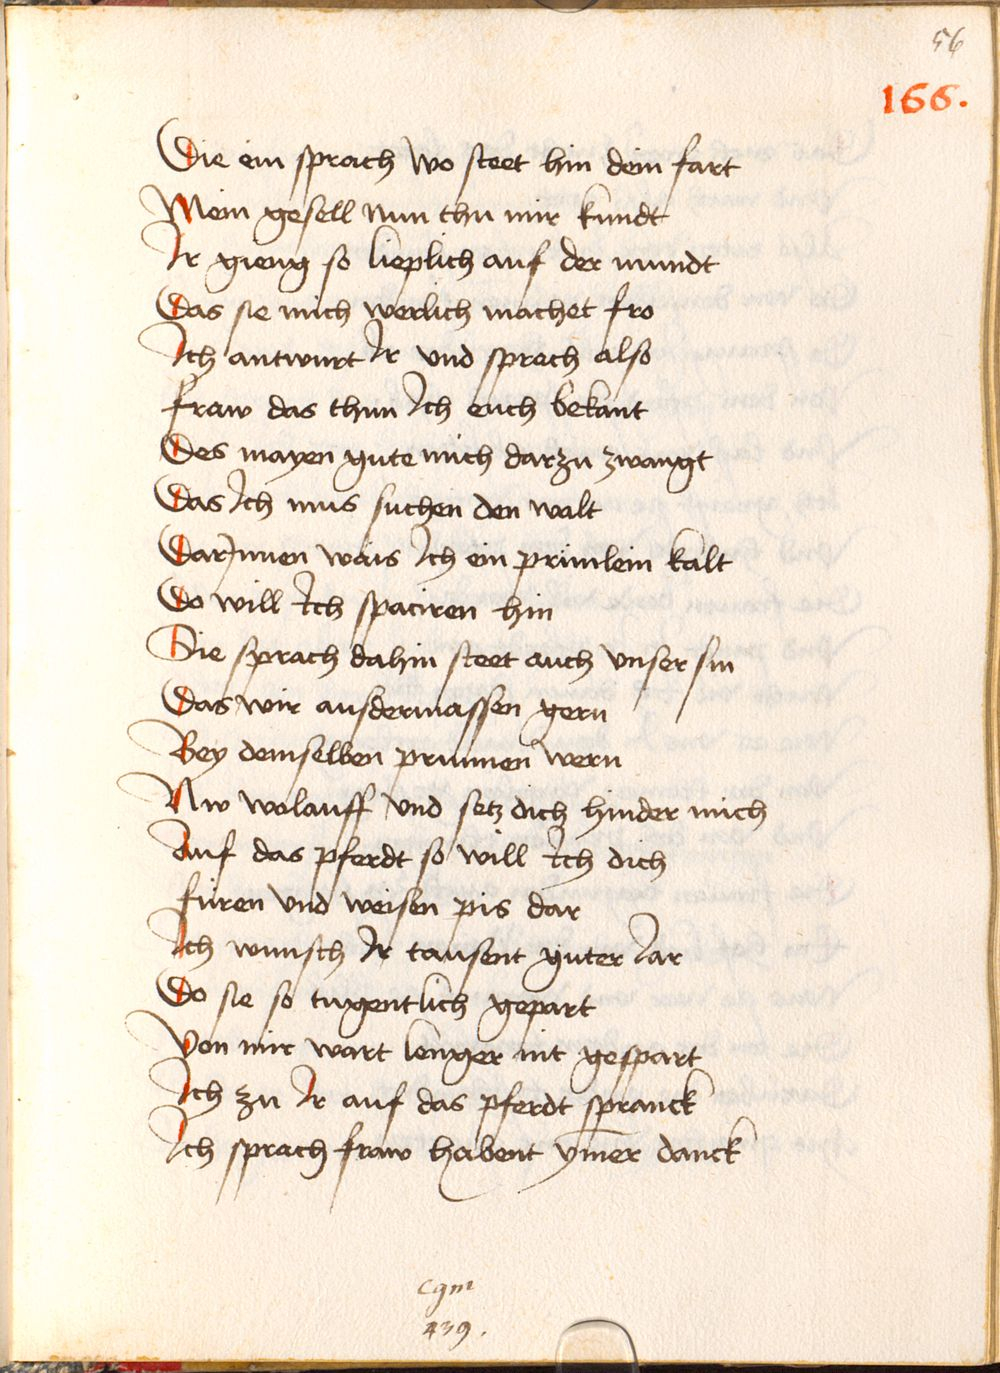 56
166.
Die ein sprach wo steet hin dein fart
Mein gesell nun thu mir kundt
Ir gieng so lieplich auf der mundt
Das sie mich werlich machet fro
Ich antwurt Ir vnd sprach also
fraw das thun Ich euch bekant
Des mayen gute mich darzu zwangt
Das Ich mus suchen den walt
Darinnen wais Ich ein prünlein kalt
Do will Ich spaciren hin
Die sprach dahin steet auch vnser sin
Das wir ausdermassen gern
Bey demselben prunnen wern
Nw wolauff vnd setz dich hinder mich
Auf das pferdt so will Ich dich
füren vnd weisen pis dar
Ich wunsch Ir tausent guter Iar
Do sie so tugentlich gepart
Von mir wart lenger nit gespart
Ich zu Ir auf das pferdt spranck
Ich sprach fraw habent ym̄er danck
Cgm
439.